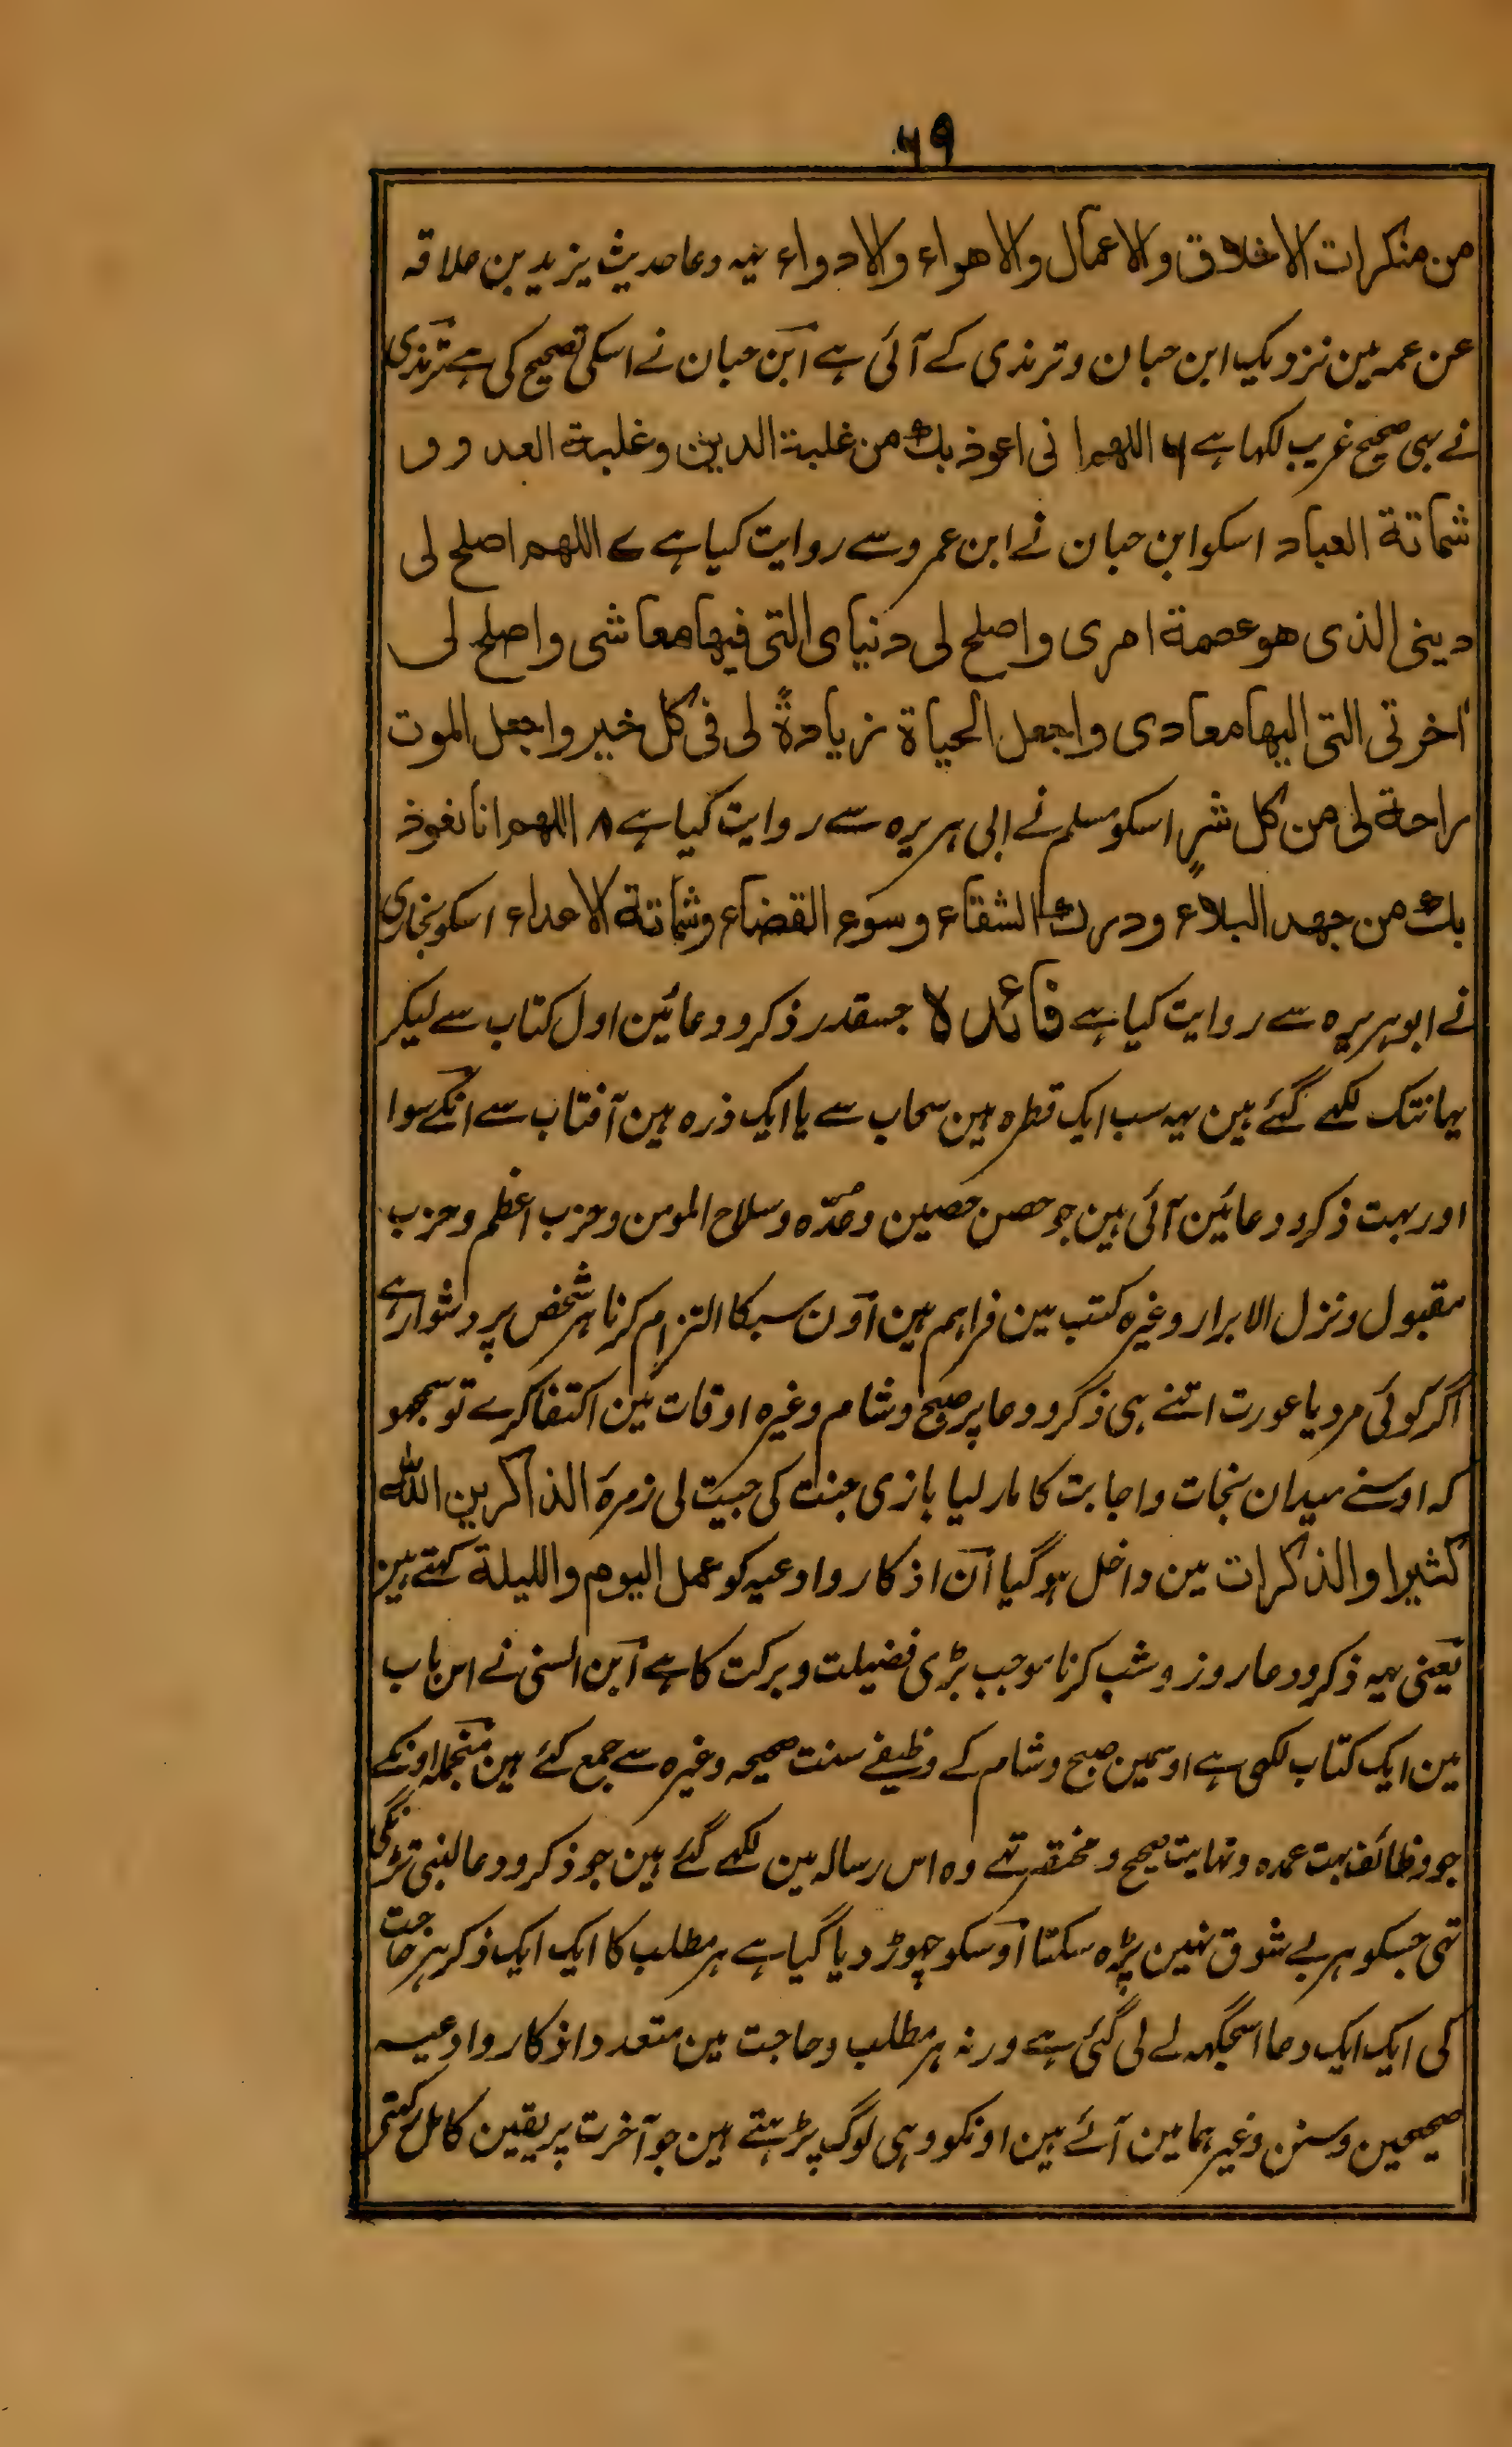 ۶۹
من منکرات الاخلاق والاعمال والاهواء والادواء یہہ دعا حدیث یزید بن علاقہ
عن عمہ مین نزدیک ابن حبان و ترمذی کے آئی ہے ابن حبان نے اسکی تصحیح کی ہے ترمذی
نے بہی صحیح غریب لکہا ہے ۶ اللهم انی اعوذ بك من غلبة الدین وغلبة العدو و
شماتة العباد اسکو ابن حبان نے ابن عمرو سے روایت کیا ہے ۷ اللهم اصلح لی
دینی الذی هو عصمة امری واصلح لی دنیای التی فیها معاشی واصلح لی
اخرتی التی الیها معادی واجعل الحیاة زیادةً لی فی کل خیر واجعل الموت
راحة لی من کل شرٍ اسکو مسلم نے ابی ہریرہ سے روایت کیا ہے ۸ اللهم انا نعوذ
بك من جهد البلاء ودرك الشقاء وسوء القضاء وشماتة الاعداء اسکو بخاری
نے ابو ہریرہ سے روایت کیا ہے فائدہ جسقدر ذکر و دعائین اول کتاب سے لیکر
یہانتک لکہے گئے ہین یہہ سب ایک قطرہ ہین سحاب سے یا ایک ذرہ ہین آفتاب سے انکے سوا
اور بہت ذکر و دعائین آئی ہین جو حصن حصین و عدّہ و سلاح المومن و حزب اعظم و حزب
مقبول و نزل الابرار وغیرہ کتب مین فراہم ہین اون سبکا التزام کرنا ہر شخص پر دشوار ہے
اگر کوئی مرد یا عورت اتنے ہی ذکر و دعا پر صبح و شام وغیرہ اوقات مین اکتفا کرے تو سمجہو
کہ اوسنے میدان نجات و اجابت کا مار لیا بازی جنت کی جیت لی زمرۂ الذاکرین الله
کثیرا والذاکرات مین داخل ہو گیا ان اذکار و ادعیہ کو عمل الیوم واللیلة کہتے ہین
یعنی یہہ ذکر و دعا روز و شب کرنا موجب بڑی فضیلت و برکت کا ہے ابن السنی نے اس باب
مین ایک کتاب لکہی ہے اوسمین صبح و شام کے وظیفے سنت صحیحہ وغیرہ سے جمع کئے ہین منجملہ اونکے
جو وظائف بہت عمدہ و نہایت صحیح و مختصر تہے وہ اس رسالہ مین لکہے گئے ہین جو ذکر و دعا لنبی چوڑی
تہی جسکو ہر بے شوق نہین پڑہ سکتا اوسکو چہوڑ دیا گیا ہے ہر مطلب کا ایک ایک ذکر ہر حاجت
کی ایک ایک دعا اسجگہہ لے لی گئی ہے ورنہ ہر مطلب و حاجت مین متعدد اذکار و ادعیہ
صحیحین و سنن وغیرہما مین آئے ہین اونکو وہی لوگ پڑہتے ہین جو آخرت پر یقین کامل رکہتے